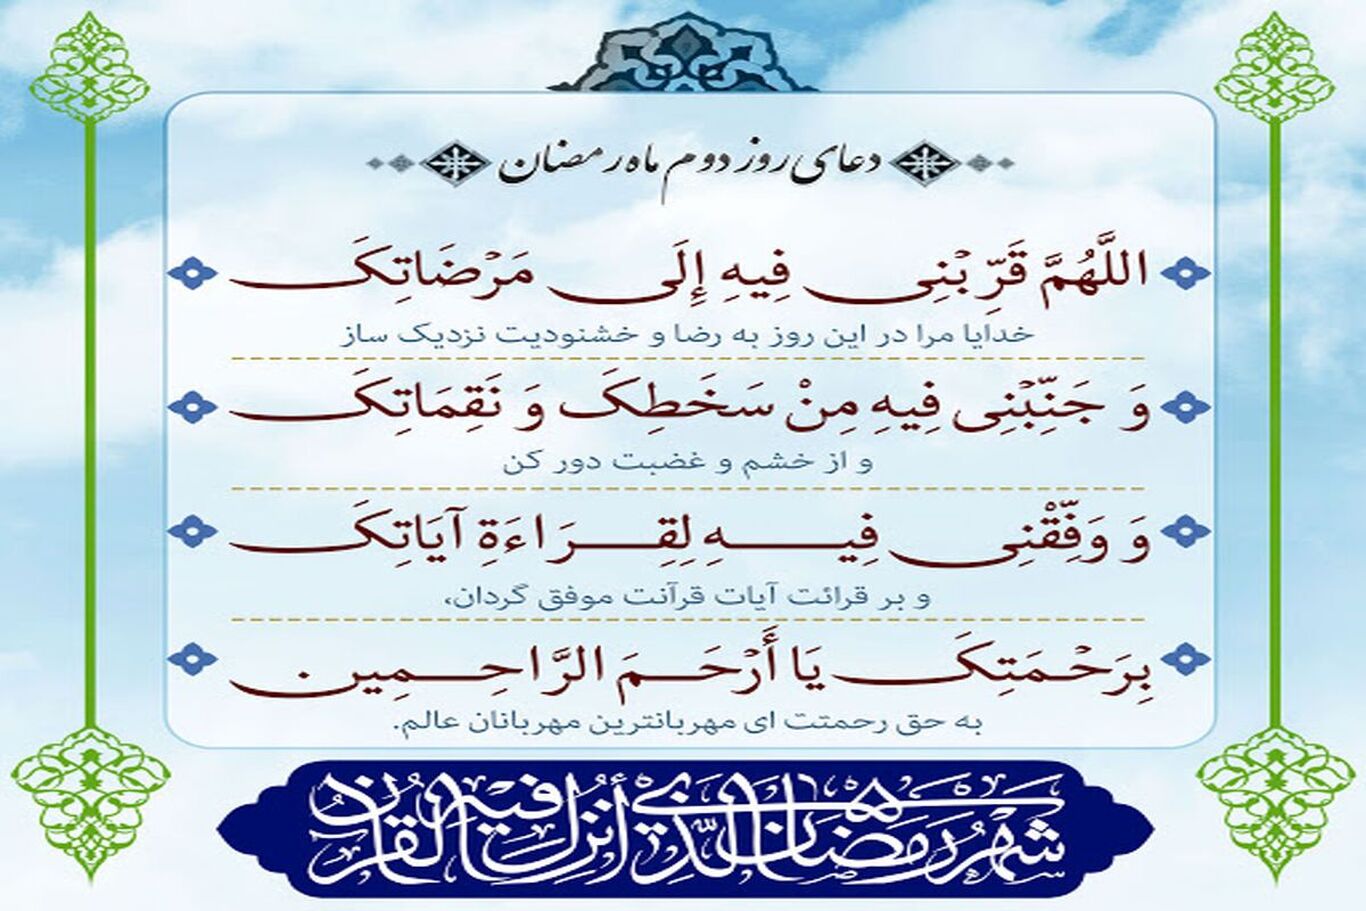 دعای روز دوم ماه رمضان
اللَّهُمَّ قَرِّبْنِی فِیهِ إِلَی مَرْضَاتِکَ
خدایا مرا در این روز به رضا و خشنودیت نزدیک ساز
وَ جَنِّبْنِی فِیهِ مِنْ سَخَطِکَ وَ نَقِمَاتِکَ
و از خشم و غضبت دور کن
وَ وَفِّقْنِی فِیهِ لِقِرَاءَةِ آیَاتِکَ
و بر قرائت آیات قرآنت موفق گردان،
بِرَحْمَتِکَ یَا أَرْحَمَ الرَّاحِمِین.
به حق رحمتت ای مهربانترین مهربانان عالم.
شَهْرُ رَمَضَانَ الَّذِي أُنْزِلَ فِيهِ الْقُرْآنُ